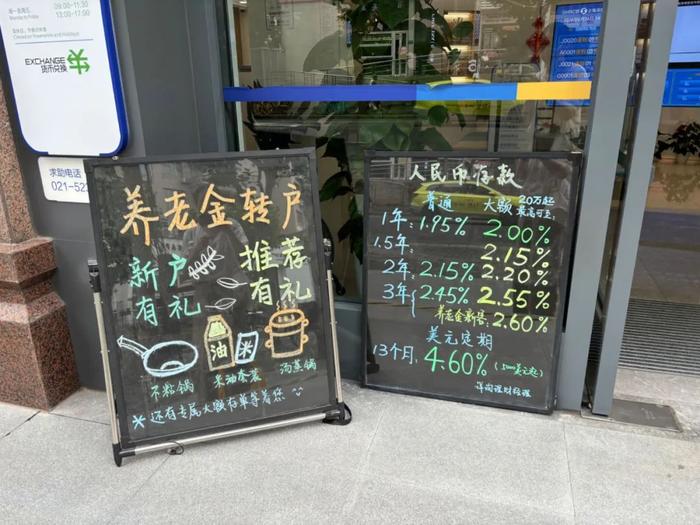 09:00-11:30
13:00-17:00
Closed on weekends and holidays
EXCHANGE
货币兑换
求助电话
021-52
养老金转户
新户 推荐
有礼 有礼
油 米
不粘锅 米油套装 汤蒸锅
*还有专属大额存单等着您
人民币存款
普通 大额 20万起
最高可至:
1年: 1.95% 2.00%
1.5年: 2.15%
2年: 2.15% 2.20%
3年 2.45% 2.55%
养老金新客: 2.60%
美元定期
13个月: 4.60% (5000美元起)
详询理财经理